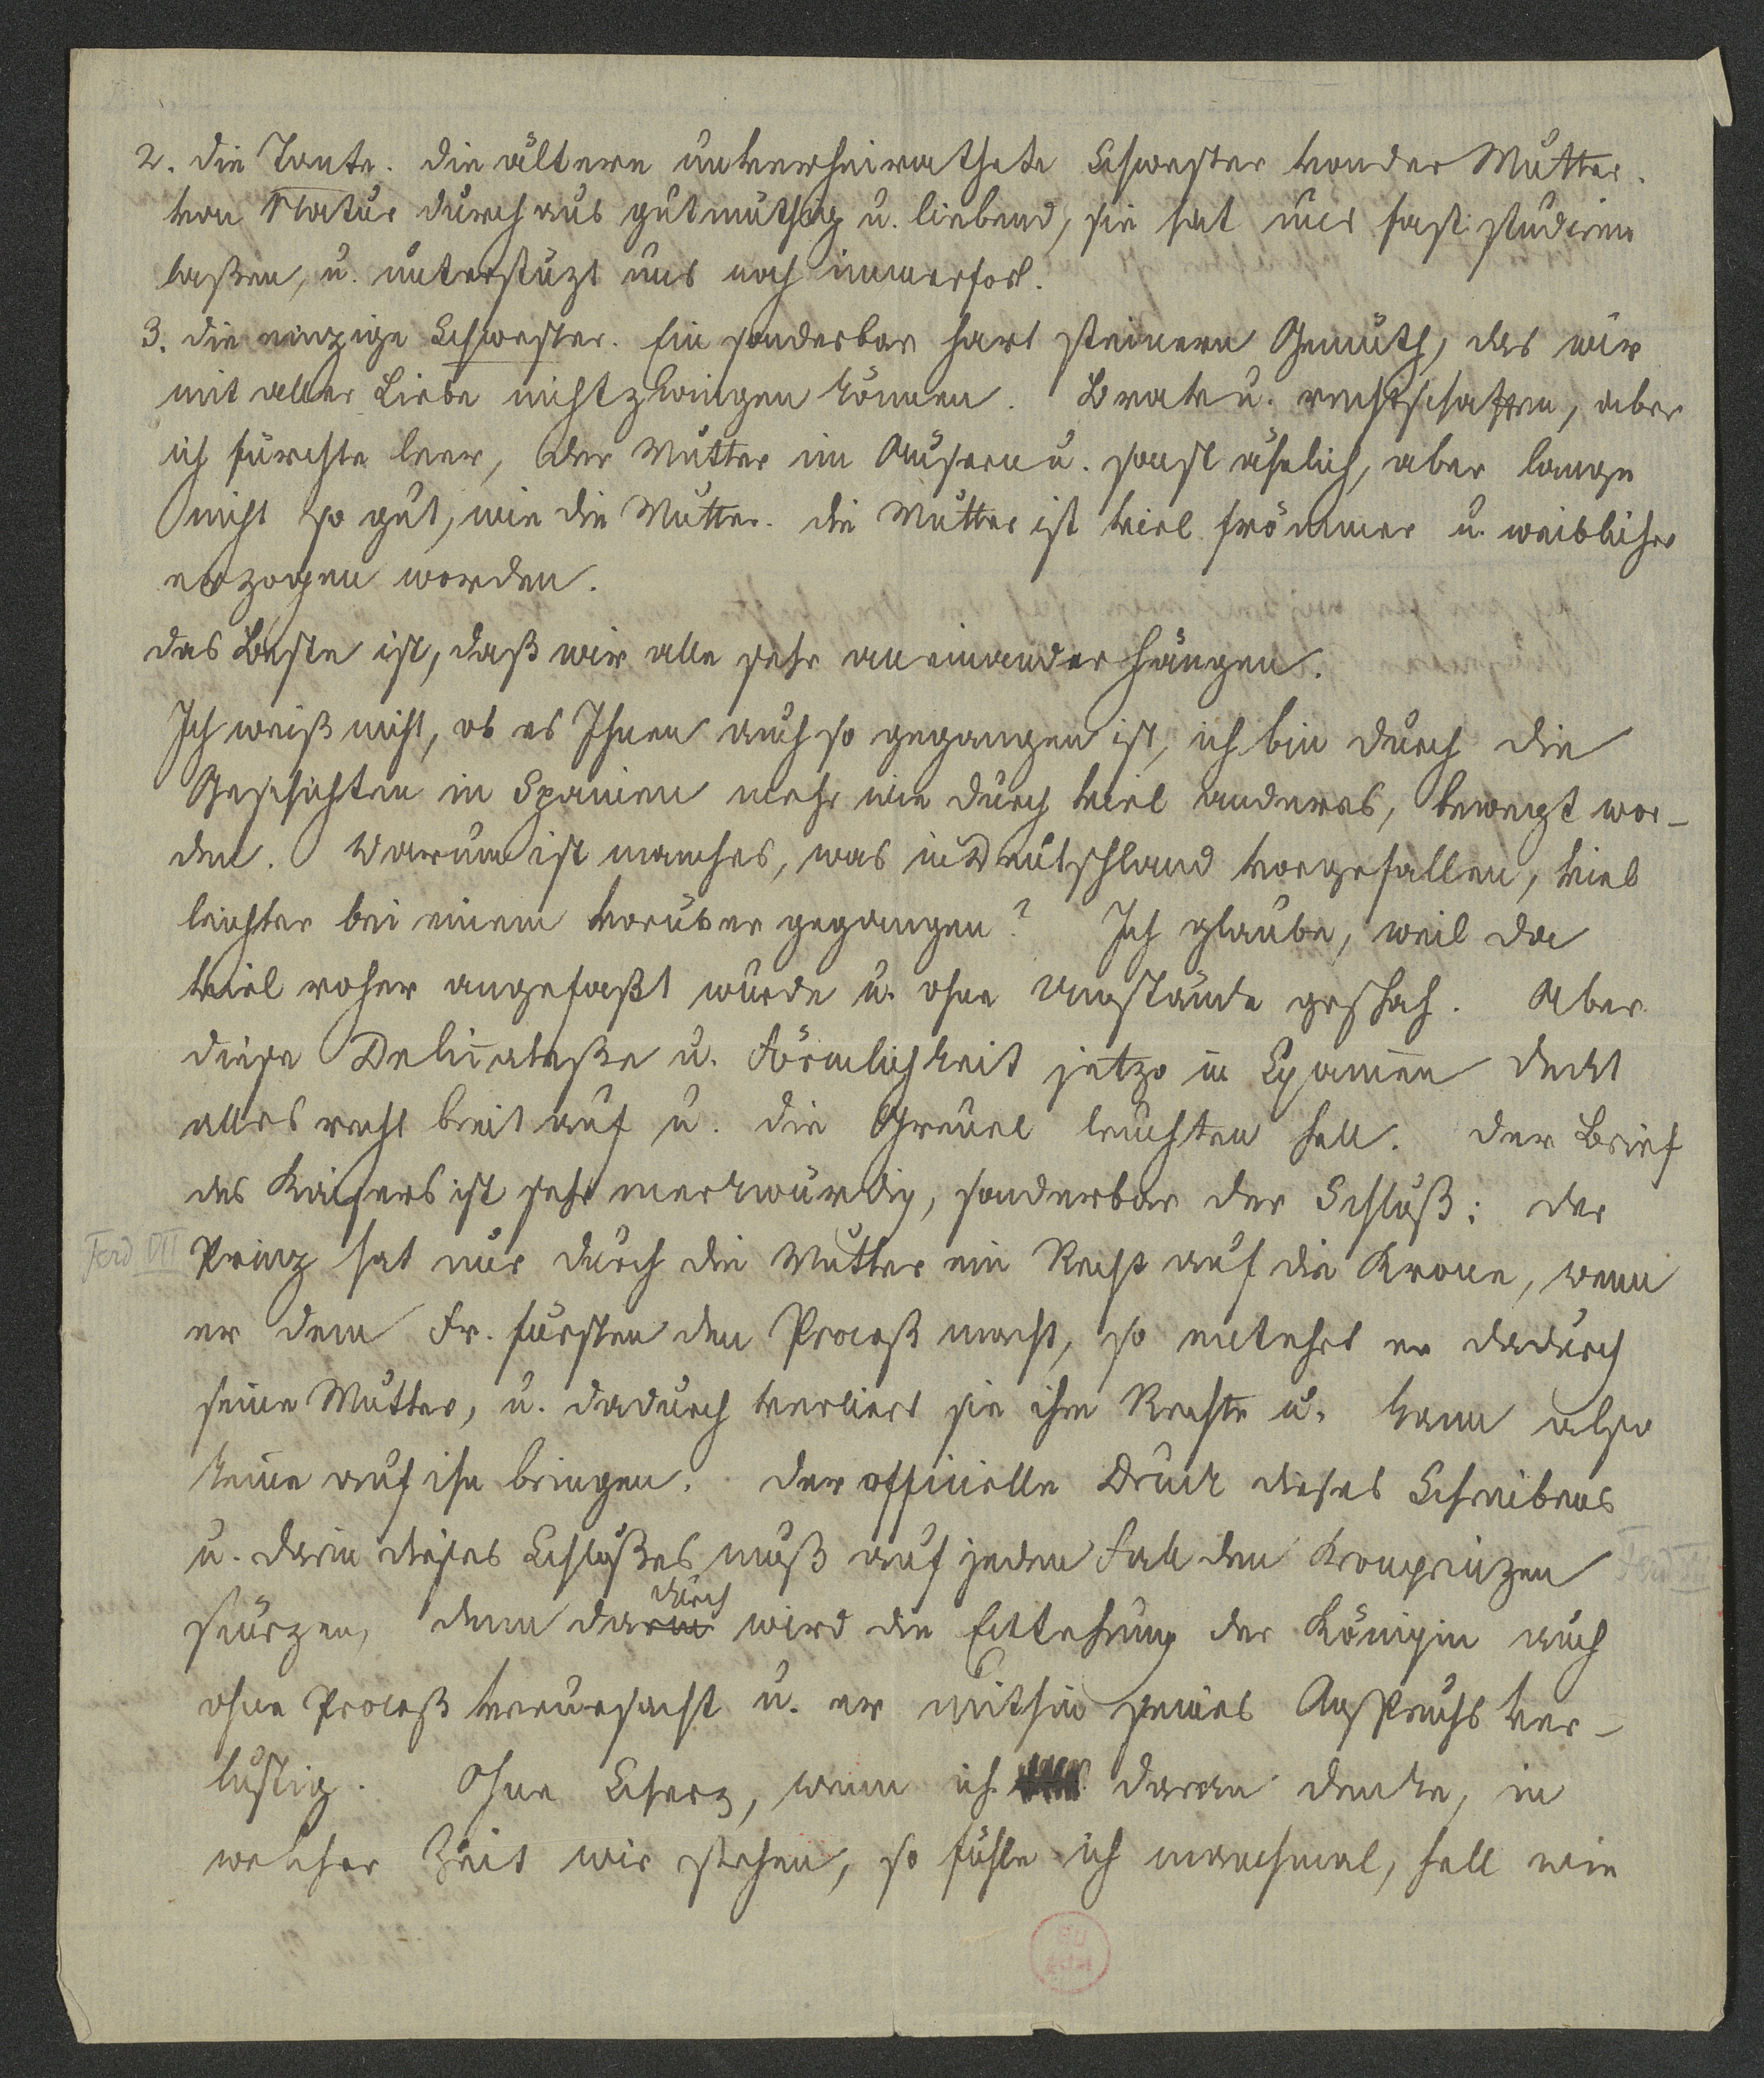 2. die Tante. die ältere unverheirathete Schwester von der Mutter.
von Natur durchaus gutmüthig u. liebend, sie hat uns fast studiren
laßen, u. unterstüzt uns noch immerfort.
3. die einzige Schwester. Ein sonderbar hart steinern Gemüth, das wir
mit aller Liebe nicht zwingen können. Brav u. rechtschaffen, aber
ich fürchte leer, der Mutter im Äusern u. sonst ähnlich, aber lange
nicht so gut, wie die Mutter. die Mutter ist viel frömmer u. weiblicher
erzogen worden.
das Beste ist, daß wir alle sehr an einander hängen.
Ich weiß nicht, ob es Ihnen auch so gegangen ist, ich bin durch die
Geschichten in Spanien mehr wie durch viel anderes, bewegt wor-
den. Warum ist manches, was in Deutschland vorgefallen, viel
leichter bei einem vorüber gegangen? Ich glaube, weil da
viel roher angefaßt wurde u. ohne Umstände geschah. Aber
diese Delicateße u. Förmlichkeit jetzo in Spanien deckt
alles recht breit auf u. die Greuel leuchten hell. Der Brief
des Kaisers ist sehr merkwürdig, sonderbar der Schluß: der
Ferd VII Prinz hat nur durch die Mutter ein Recht auf die Krone, wenn
er dem Fr. fürsten den Proceß macht, so entehrt er dadurch
seine Mutter, u. dadurch verliert sie ihre Rechte u. kann also
keine auf ihn bringen. Der officielle Druck dieses Schreibens
u. darin dieses Schlußes muß auf jeden Fall den Kronprinzen Ferd VII
stürzen, denn darin durch wird die Entehrung der Königin auch
ohne Proceß verursacht u. er mithin seines Anspruchs ver-
lustig. Ohne Scherz, wenn ich daran denke, in
welcher Zeit wir stehen, so fühle ich manchmal, hell wie